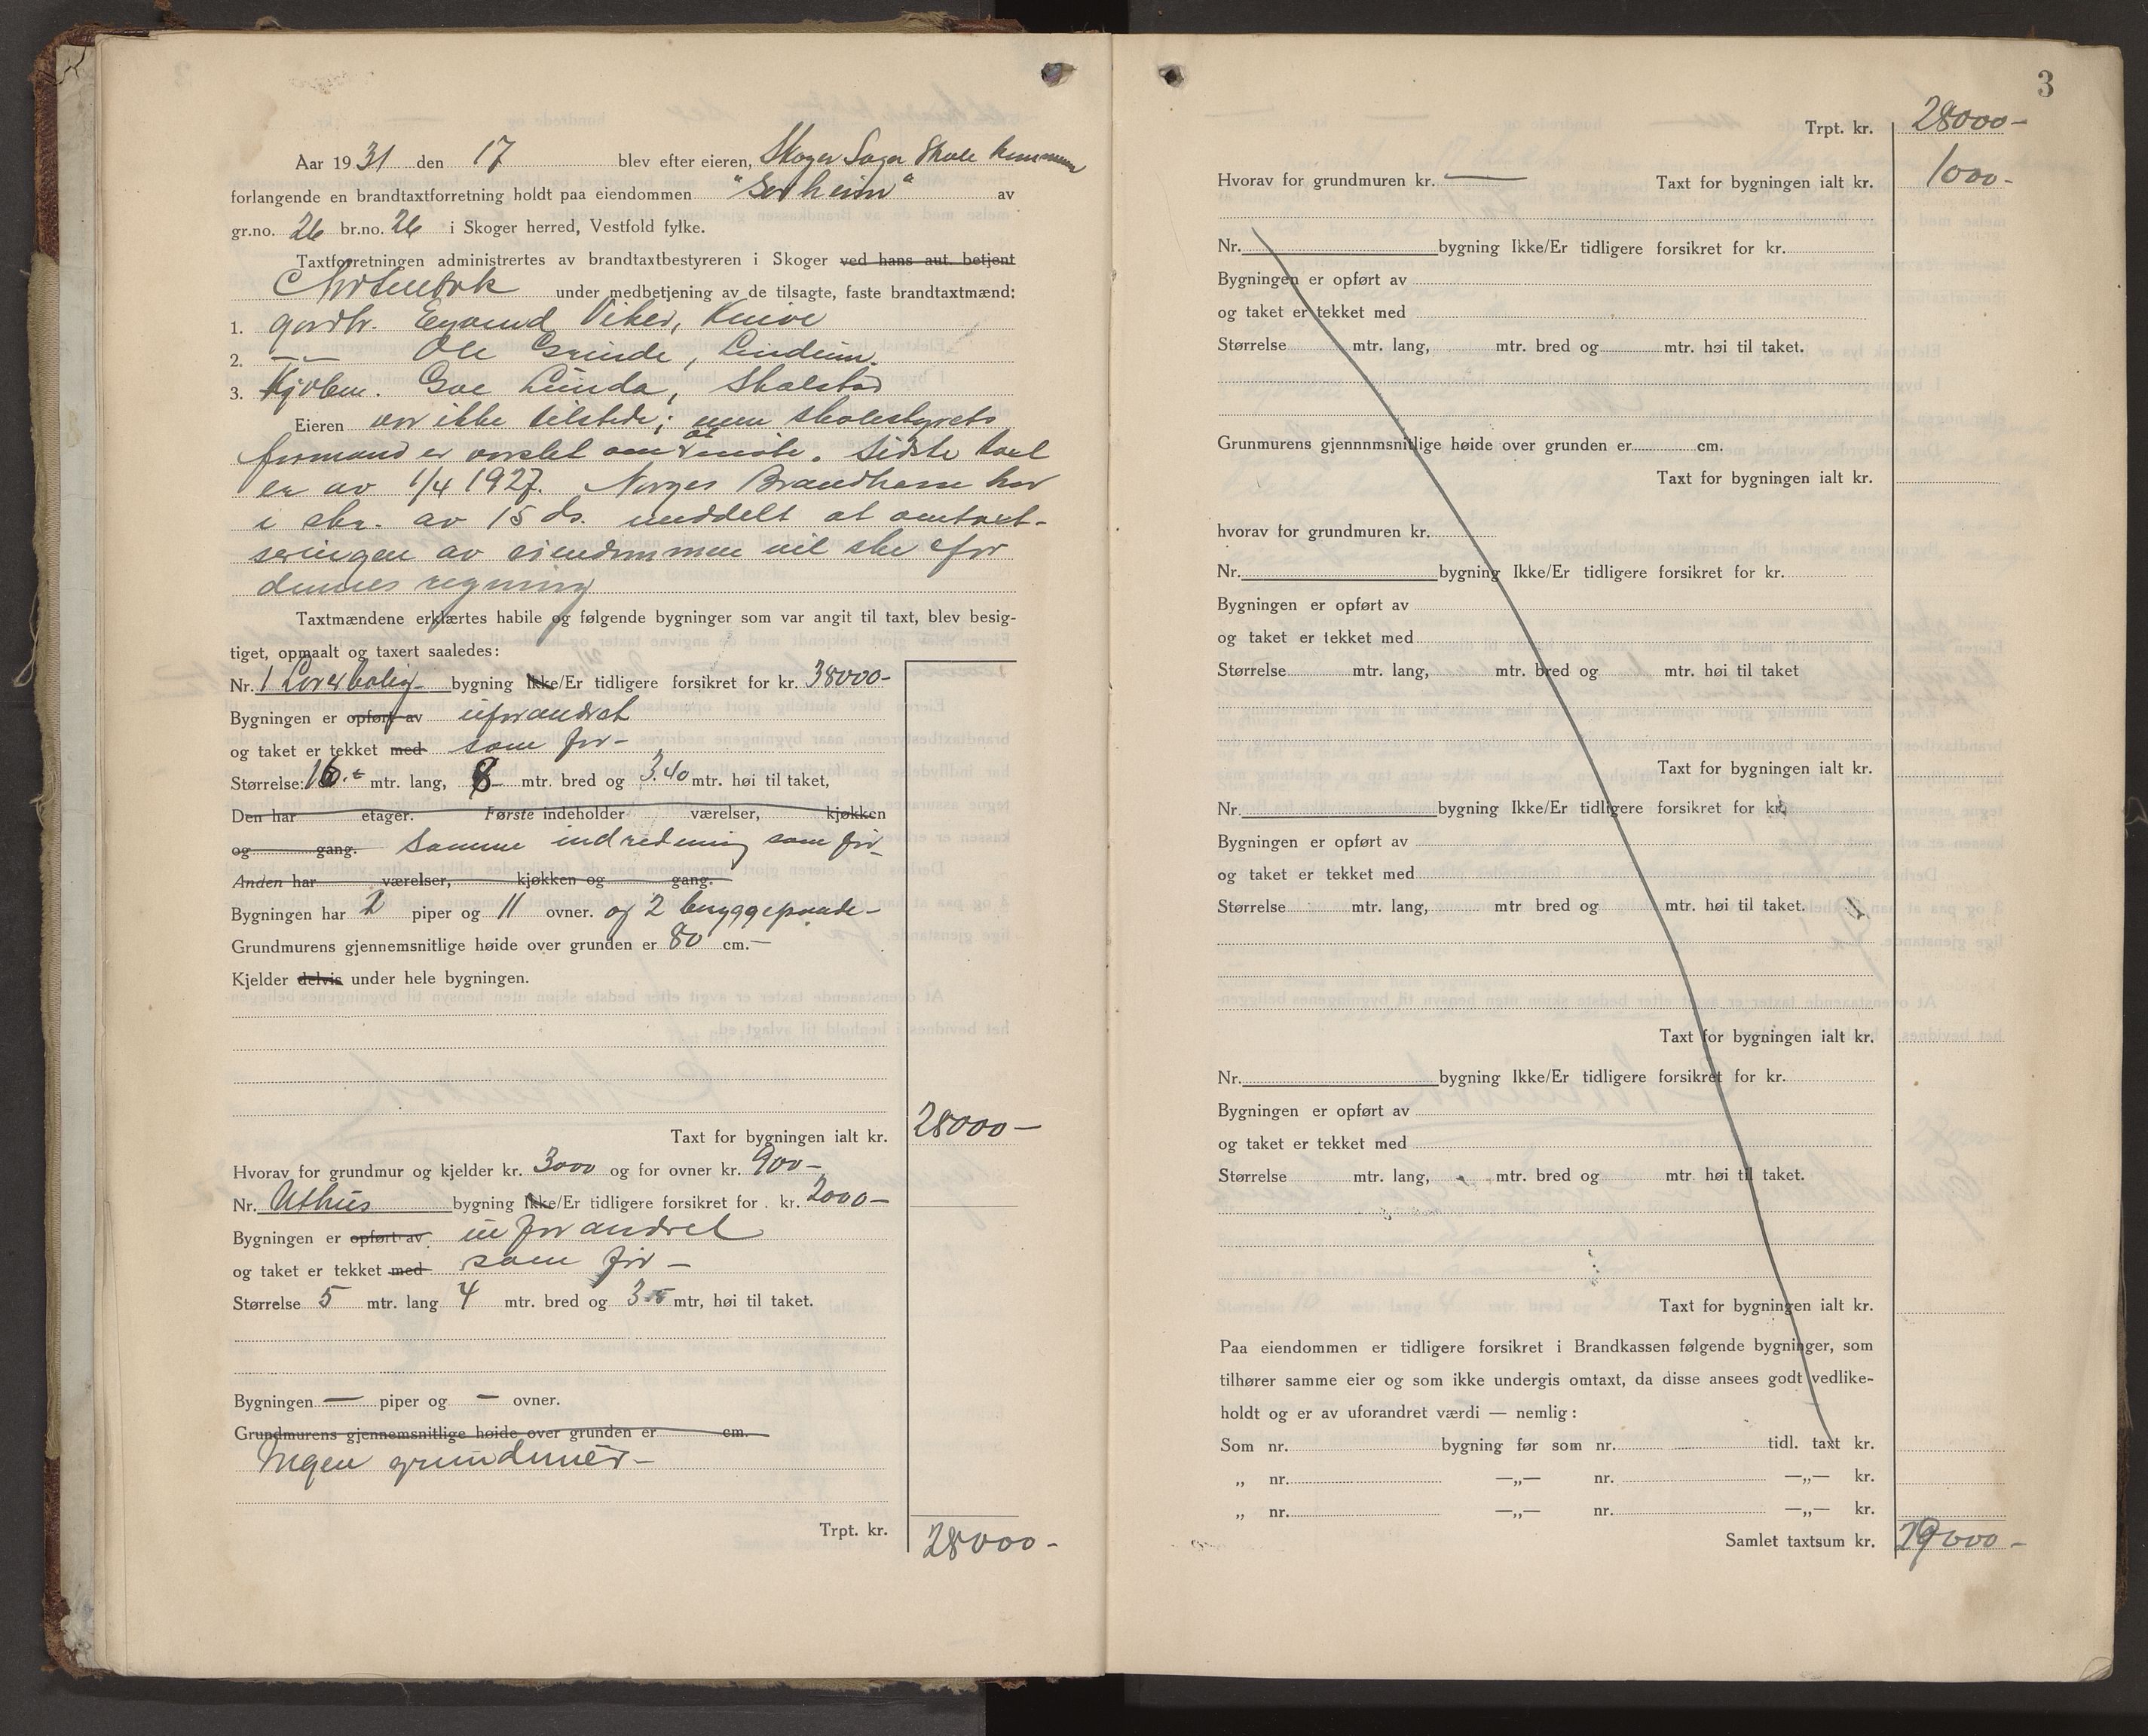 Aar 1931 den 17 blev efter eieren, Skoger Skole kommune
forlangende en brandtaxtforretning holdt paa eiendommen av
gr.no. 26 br.no. 26 i Skoger herred, Vestfold fylke.
Taxtforretningen administrertes av brandtaxtbestyreren i Skoger ved hans aut. betjent
under medbetjening av de tilsagte, faste brandtaxtmænd:
1. gardbr. Eyvind Viker, Knive
2. —"— Ole Grinde, Lindum.
3. Kjøbm. Lunda, Skalstad
Eieren var ikke tilstede; men skolestyrets
formand er varslet om at møte. Sidste taxt
er av 1/4 1927. Norges Brandkasse har
i skr. av 15 ds. meddelt at omtaxt-
seringen av eiendommen vil ske for
dennes regning
Taxtmændene erklærtes habile og følgende bygninger som var angit til taxt, blev besig-
tiget, opmaalt og taxert saaledes:
Nr. 1 Lærerbolig bygning Ikke/Er tidligere forsikret for kr. 38000-
Bygningen er opført av uforandret
og taket er tekket med som før-
Størrelse: 16.- mtr. lang, 8- mtr. bred og 3.40 mtr. høi til taket,
Den har etager. Første indeholder værelser, kjøkken
og gang. Samme indredning som før-
Anden har værelser, kjøkken og gang.
Bygningen har 2 piper og 11 ovner. og 2 bryggepande-
Grundmurens gjennemsnitlige høide over grunden er 80 cm.—
Kjelder delvis under hele bygningen.
Taxt for bygningen ialt kr. 28000—
Hvorav for grundmur og kjelder kr. 3000 og for ovner kr. 900-
Nr. Uthus bygning Ikke/Er tidligere forsikret for . kr. 2000—
Bygningen er opført av uforandret
og taket er tekket med som før —
Størrelse 5 mtr. lang 4 mtr. bred og mtr, høi til taket.
Bygningen — piper og — ovner.
Grundmurens gjennemsnitlige høide over grunden er cm.
Ingen grundmur—
Trpt. kr. 28000-
3
Trpt. kr. 28000-
Hvorav for grundmuren kr. — Taxt for bygningen ialt kr. 1000-
Nr. bygning Ikke/Er tidligere forsikret for kr.
Bygningen er opført av
og taket er tekket med
Størrelse mtr. lang, mtr. bred og mtr. høi til taket.
Grunmurens gjennnmsnitlige høide over grunden er cm.
Taxt for bygningen ialt kr.
hvorav for grundmuren kr.
Nr. bygning Ikke/Er tidligere forsikret for kr.
Bygningen er opført av
og taket er tekket med
Størrelse mtr. lang, mtr. bred og mtr. høi til taket
Taxt for bygningen ialt kr.
Nr. bygning Ikke/Er tidligere forsikret for kr.
Bygningen er opført av
og taket er tekket med
Størrelse mtr. lang, mtr bred og mtr. høi til taket.
Taxt for bygningen ialt kr.
Nr. bygning Ikke/Er tidligere forsikret for kr.
Bygningen er opført av
og taket er tekket med
Størrelse mtr. lang, mtr. bred og mtr høi til taket.
Taxt for bygningen ialt kr.
Paa eiendommen er tidligere forsikret i Brandkassen følgende bygninger, som
tilhører samme eier og som ikke undergis omtaxt, da disse ansees godt vedlike-
holdt og er av uforandret værdi — nemlig:
Som nr. bygning før som nr. tidl. taxt kr.
„ nr. —„— nr. —„— kr.
„ nr. —„— nr. —„— kr.
Samlet taxtsum kr. 29000-